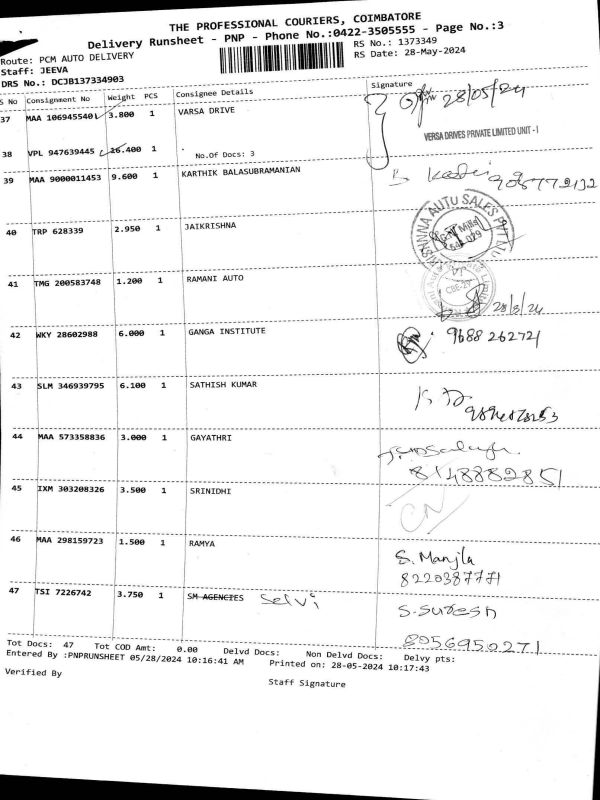 THE PROFESSIONAL COURIERS, COIMBATORE
Delivery Runsheet - PNP - Phone No.:0422-3505555 - Page No.:3
Route: PCM AUTO DELIVERY RS No.: 1373349
Staff: JEEVA RS Date: 28-May-2024
DRS No.: DCJB137334903
S No Consignment No Weight PCS Consignee Details Signature
37 MAA 106945540 3.800 1 VARSA DRIVE 28/05/24
VERSA DRIVES PRIVATE LIMITED UNIT - I
38 VPL 947639445 16.400 1 .
No.Of Docs: 3
39 MAA 9000011453 9.600 1 KARTHIK BALASUBRAMANIAN
40 TRP 628339 2.950 1 JAIKRISHNA
AUTO SALES
41 TMG 200583748 1.200 1 RAMANI AUTO
42 WKY 28602988 6.000 1 GANGA INSTITUTE 9688 262721
43 SLM 346939795 6.100 1 SATHISH KUMAR
44 MAA 573358836 3.000 1 GAYATHRI
8148882851
45 IXM 303208326 3.500 1 SRINIDHI
46 MAA 298159723 1.500 1 RAMYA S. Manjla
8220387771
47 TSI 7226742 3.750 1 SM AGENCIES Selvi S.Suresh
8056950271
Tot Docs: 47 Tot COD Amt: 0.00 Delvd Docs: Non Delvd Docs: Delvy pts:
Entered By :PNPRUNSHEET 05/28/2024 10:16:41 AM Printed on: 28-05-2024 10:17:43
Verified By Staff Signature